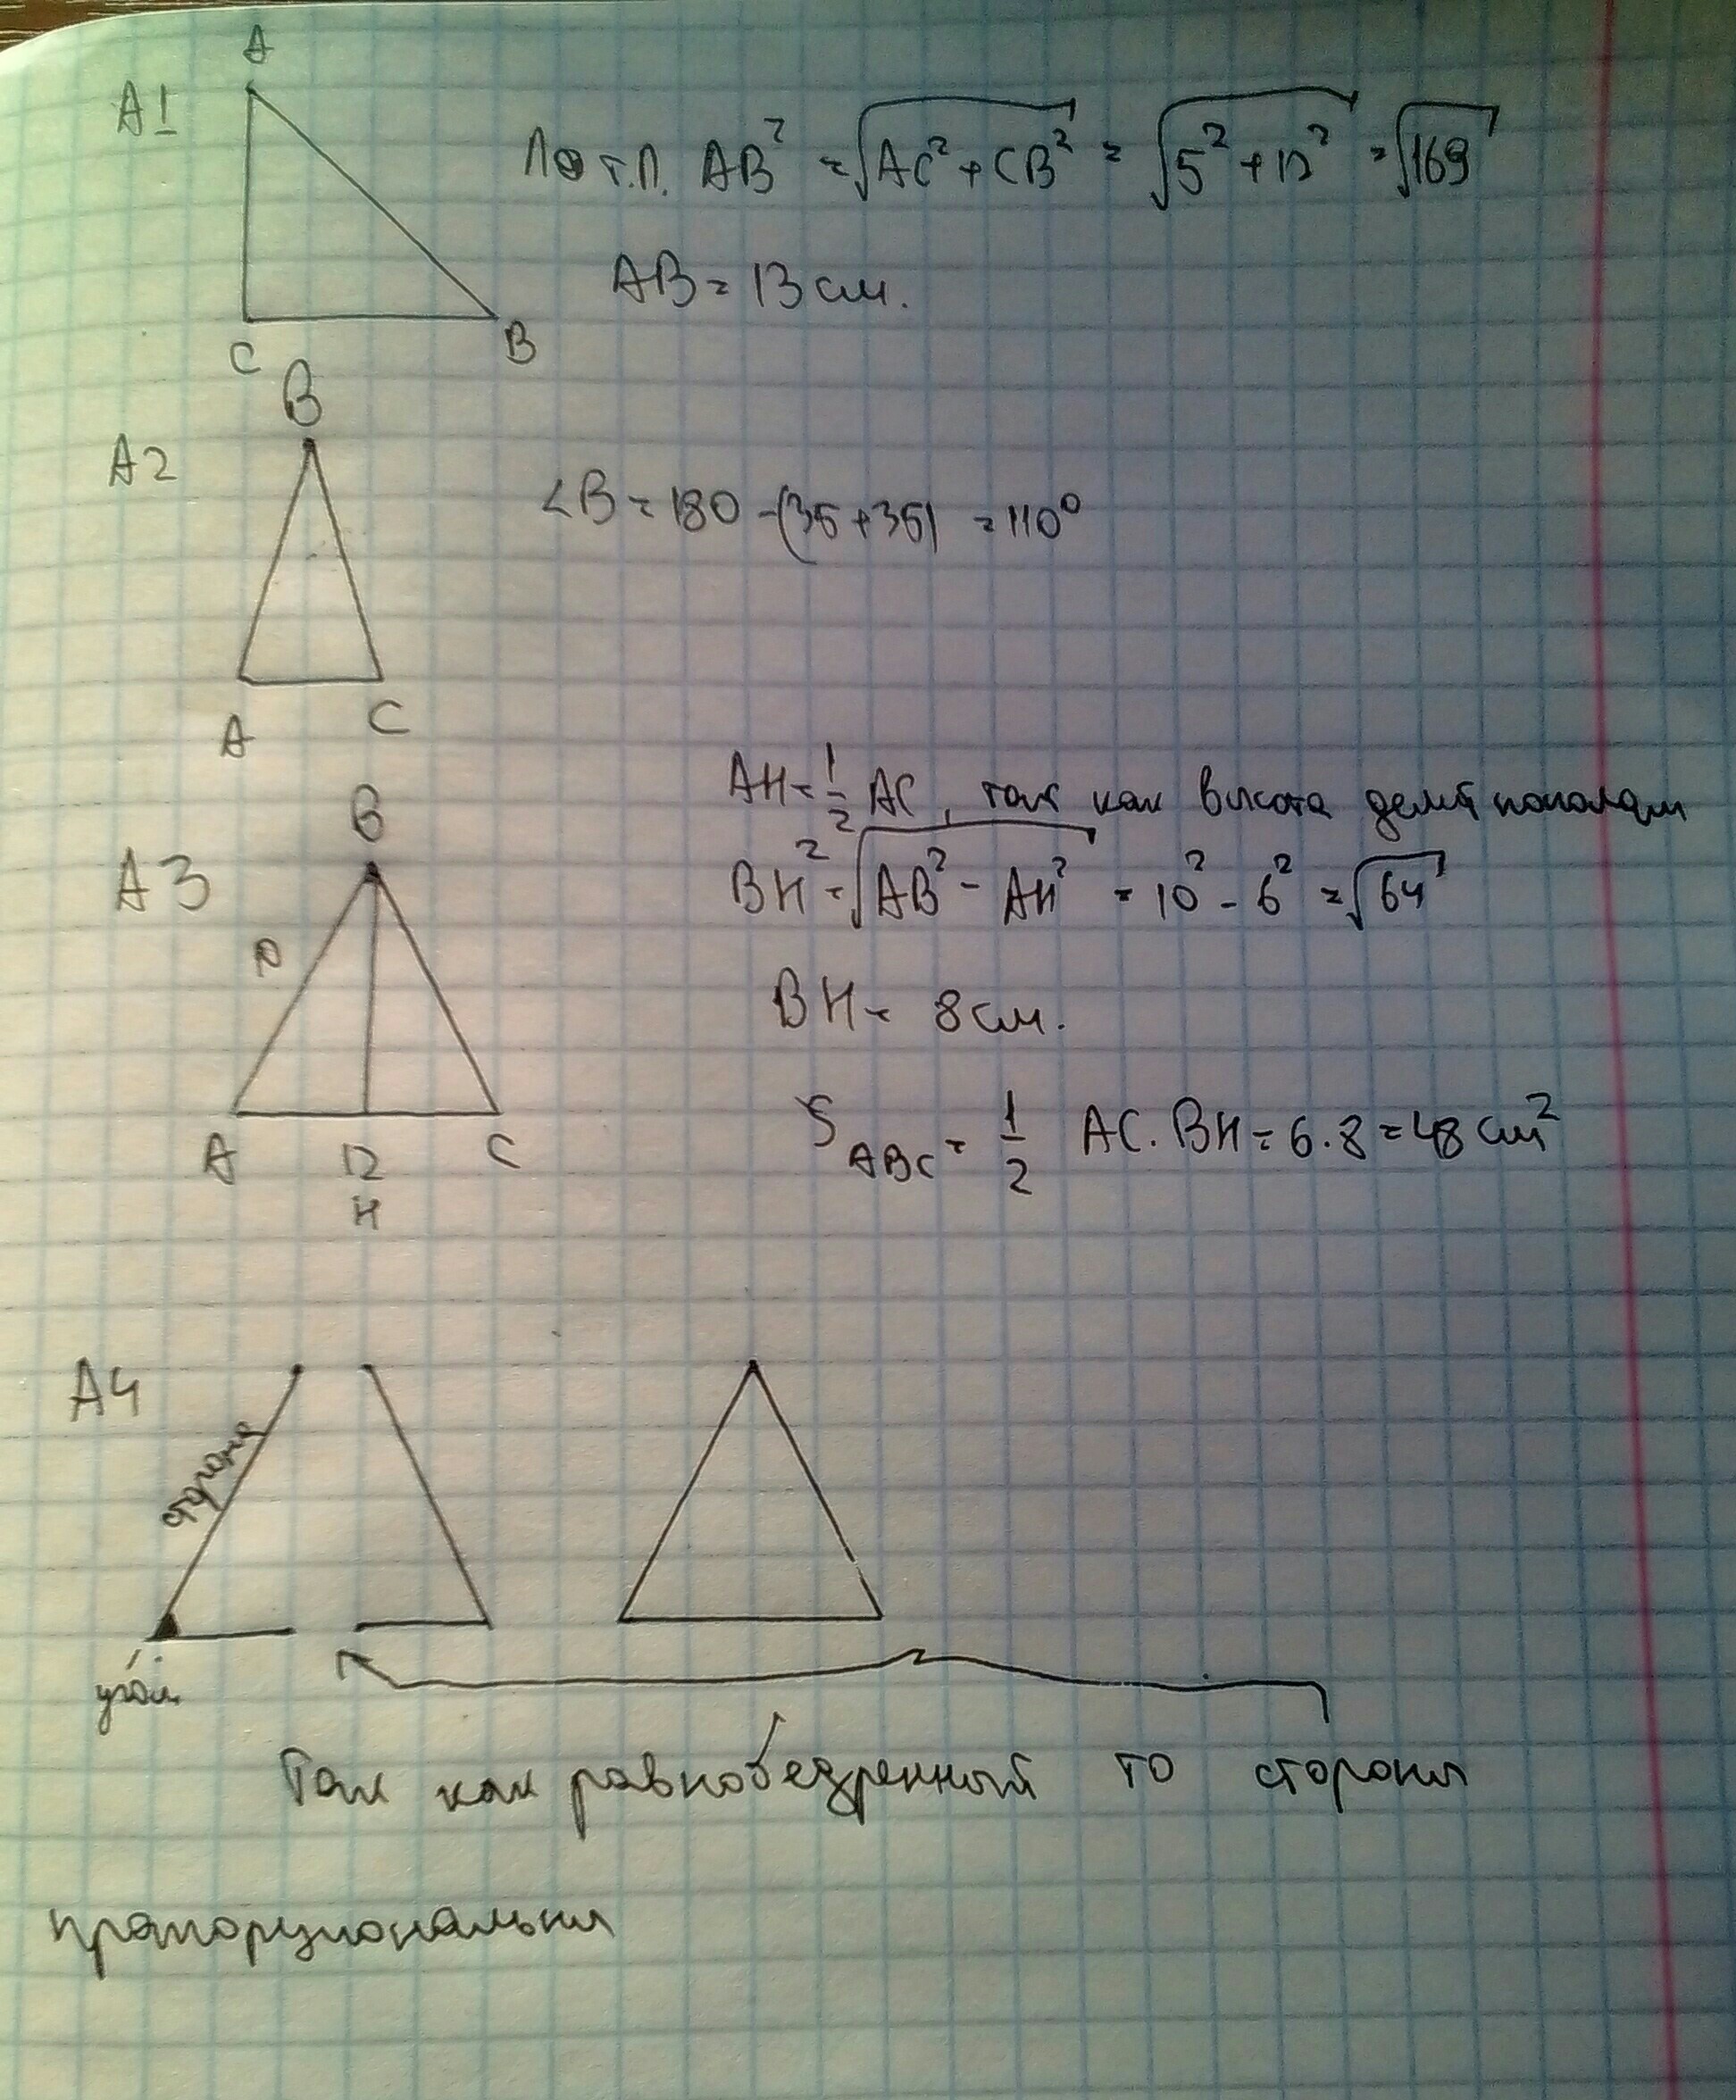 A
A1
По т.П. AB² = √AC² + CB² = √5² + 12² = √169
AB = 13 см.
C
B
B
A2
∠B = 180 - (35 + 35) = 110°
A
C
AH = 1/2 AC, так как высота делит пополам
B
A3
BH² = √AB² - AH² = 10² - 6² = √64
10
BH = 8 см.
S ABC = 1/2 AC · BH = 6 · 8 = 48 см²
A
12
C
H
A4
сторона
угол
Так как равнобедренный то стороны
пропорциональны